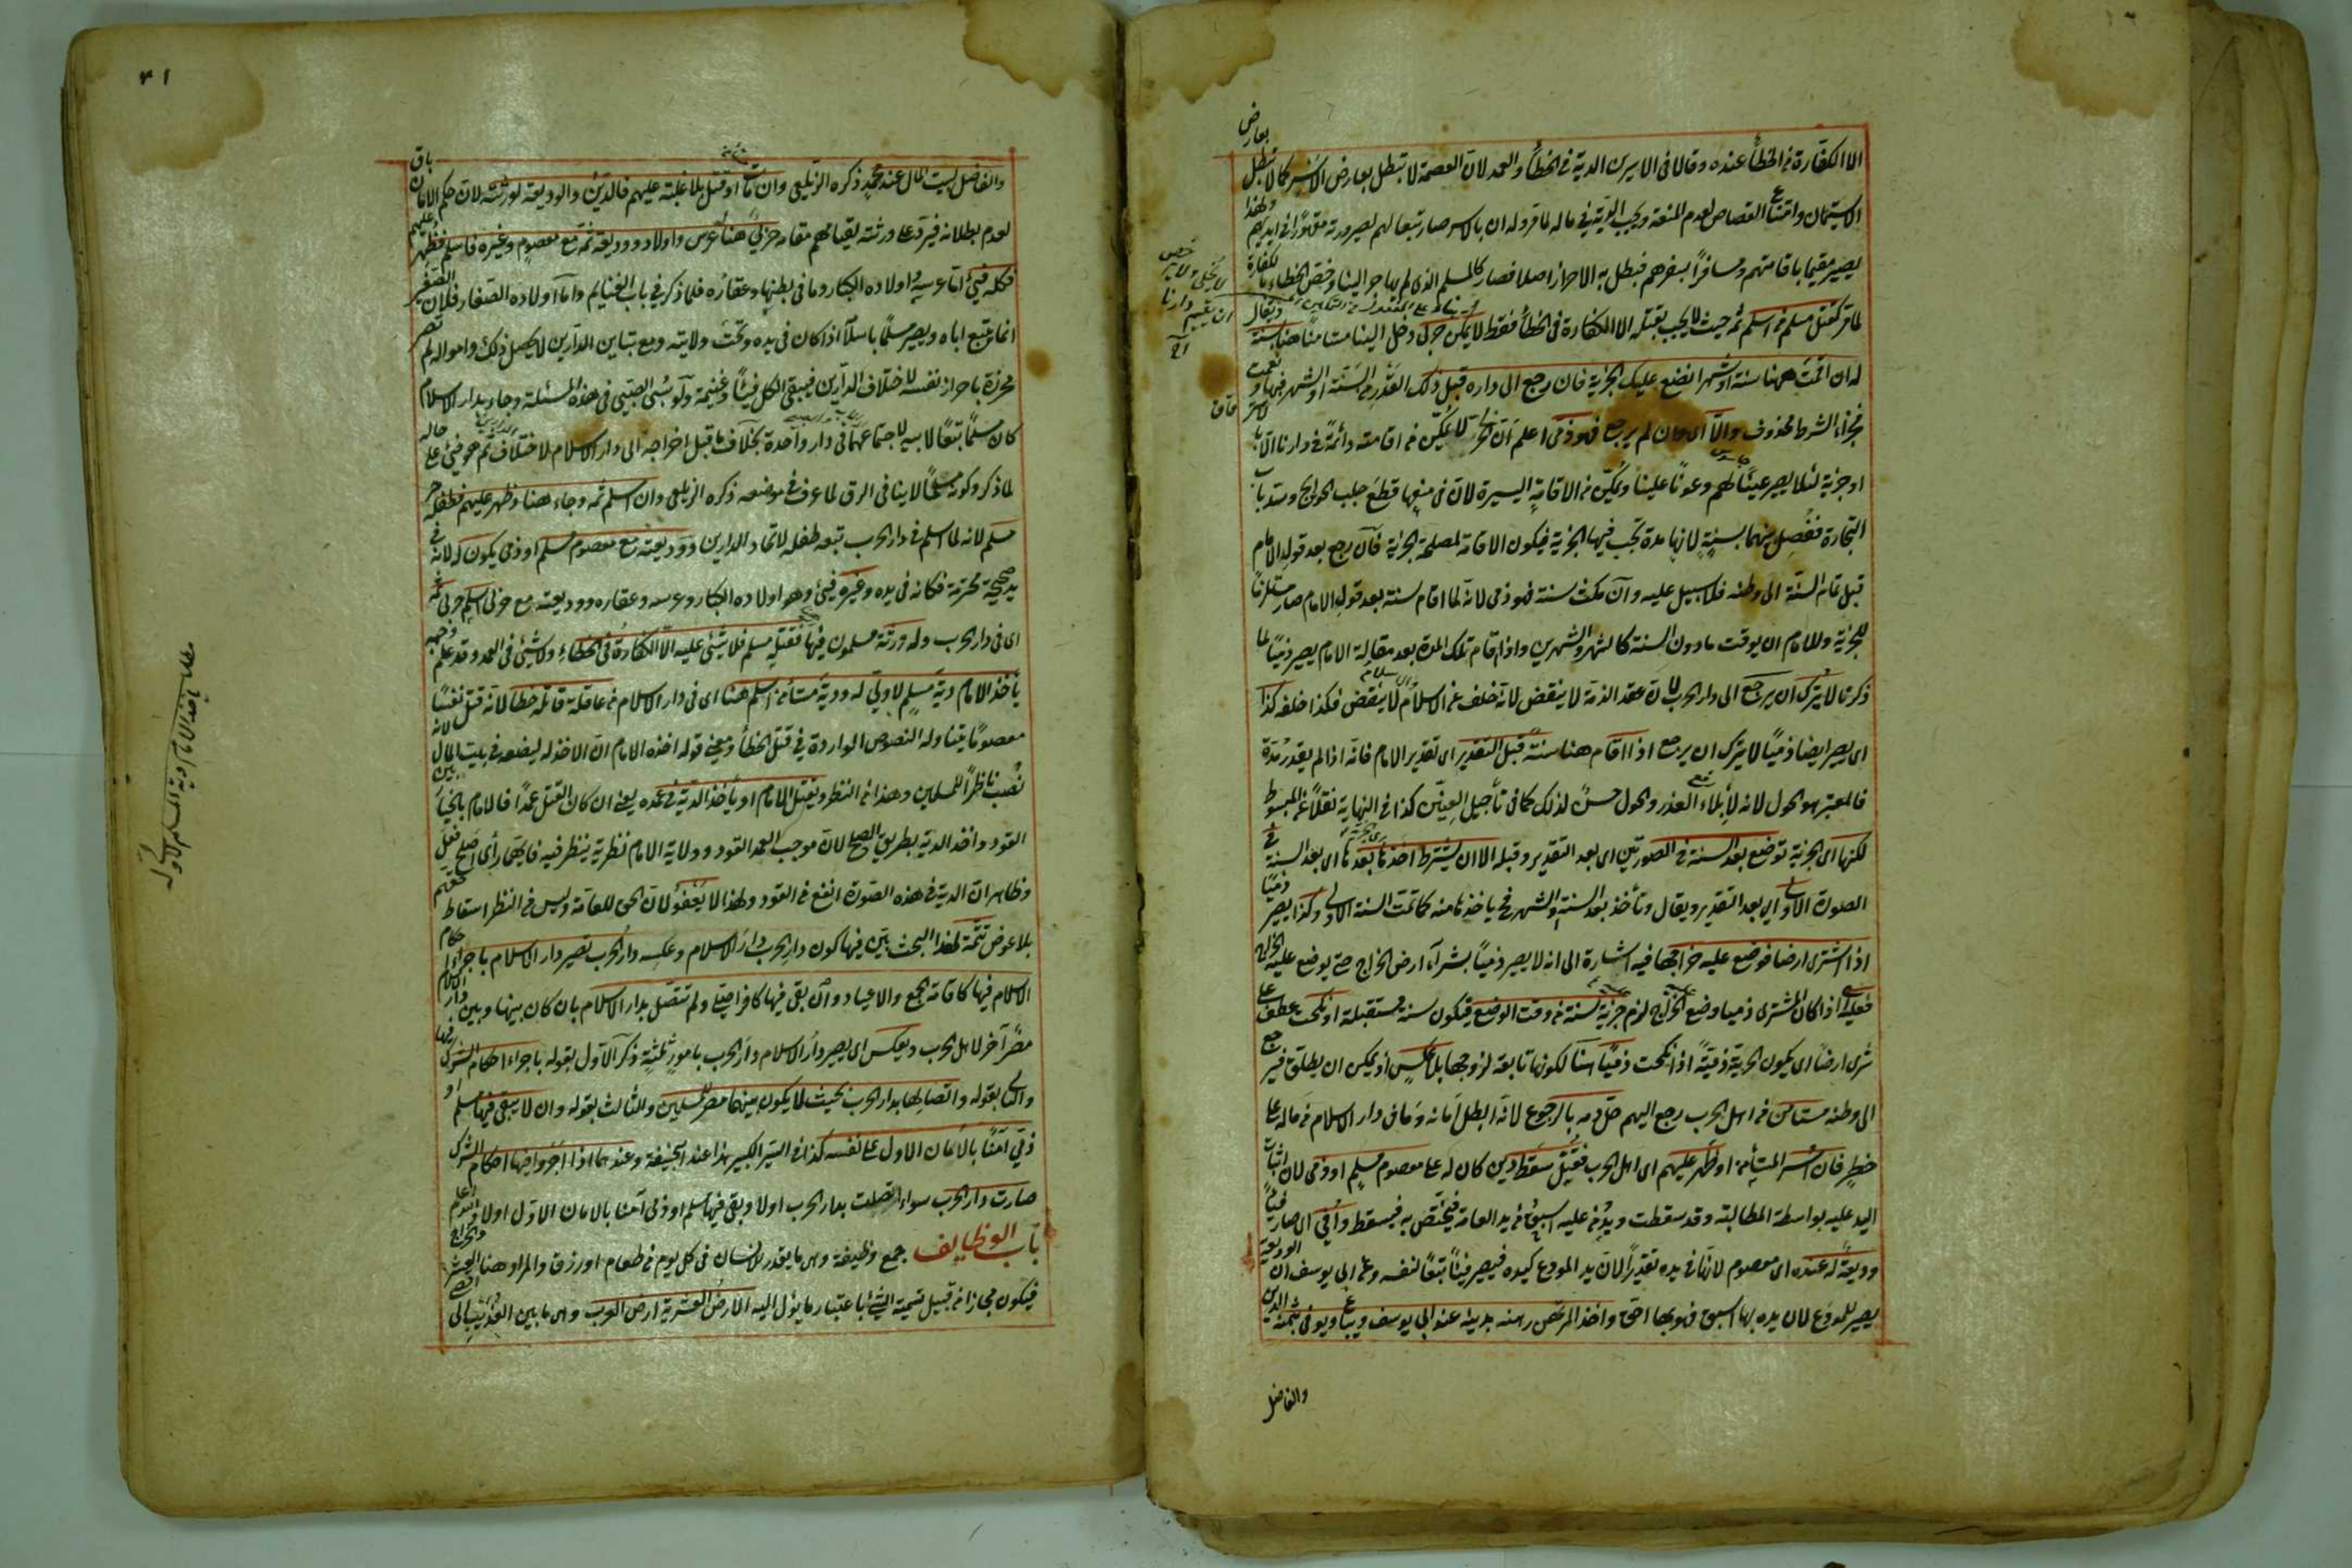 الا الكفارة في الخطأ عنده وقالا في الاسيرين الدية في الخطأ والعمد لان العصمة لا تبطل بعارض الاسر كما لا تبطل بعارض
الاستيمان وامتناع القصاص لعدم المنعة ويجب الدية في ماله لما مر وله ان بالاسر صار تبعا لهم لصيرورته مقهورا في ايديهم ولهذا
يصير مقيما باقامتهم ومسافرا بسفرهم فبطل به الاحراز اصلا فصار كالمسلم الذي لم يهاجر الينا وخص الخطاء بالكفارة
لما مر كقتل مسلم من اسلم ثمه حيث لا يجب بقتله الا الكفارة في الخطأ فقط لا يمكن حربي دخل الينا مستأمنا هنا سنة ويقال
له ان اقمت ههنا سنة او شهرا نضع عليك الجزية فان رجع الى داره قبل ذلك المقدر من السنة او الشهر فبها ونعمت
فجزاء الشرط محذوف والا اي وان لم يرجع فهو ذمي اعلم ان الحربي لا يمكن من اقامته دائمة في دارنا الا باسترقاق
او جزية لئلا يصير عينا لهم وعونا علينا ويمكن من الاقامة اليسيرة لان في منعها قطع جلب الحوائج وسد باب
التجارة ففصل بينهما بسنة لانها مدة تجب فيها الجزية فيكون الاقامة لمصلحة الجزية فان رجع بعد قول الامام
قبل تمام السنة الى وطنه فلا سبيل عليه وان مكث سنة فهو ذمي لانه لما اقام سنة بعد قول الامام صار ملتزما
للجزية وللامام ان يوقت ما دون السنة كالشهر والشهرين واذا اقام تلك المدة بعد مقالة الامام يصير ذميا لما
ذكرنا لا يترك ان يرجع الى دار الحرب لان عقد الذمة لا ينقض لانه خلف عن الاسلام والاسلام لا ينقض فكذا خلفه كذا
اي يصير ايضا ذميا لا يترك ان يرجع اذا اقام هنا سنة قبل التقدير اي تقدير الامام فانه اذا لم يقدر مدة
فالمعتبر هو الحول لانه لابلاء العذر والحول حسن لذلك كما في تأجيل العنين كذا في النهاية نقلا عن المبسوط
لكنها اي الجزية توضع بعد السنة في الصورتين اي بعد التقدير وقبله الا ان يشترط اخذها بعدها اي بعد السنة في
الصورة الاولى اي بعد التقدير ويقال وتأخذ بعد السنة او الشهر فح يأخذها منه كما تمت السنة الاولى وكذا يصير ذميا
اذا اشترى ارضا فوضع عليه خراجها فيه اشارة الى انه لا يصير ذميا بشراء ارض الخراج حتى يوضع عليه الخراج
فعليه اذا كان المشتري ذميا وضع الخراج لزم جزية سنة من وقت الوضع فيكون سنة مستقبلة او نكحت عطف على
شرى ارضا اي يكون الحربية ذمية اذا نكحت ذميا هنا لكونها تابعة لزوجها بلا عكس اذ يمكن ان يطلق فيرجع
الى وطنه مستأمن من اهل الحرب رجع اليهم حل دمه بالرجوع لانه ابطل امانه وما في دار الاسلام من ماله على
خطر فان اسر المستأمن او ظهر عليهم اي اهل الحرب فقتل سقط دين كان له على معصوم مسلم او ذمي لان اثبات
اليد عليه بواسطة المطالبة وقد سقطت ويد من عليه اسبق من يد العامة فيختص به فيسقط وافئ اي صار فيئا
وديعة له عنده اي معصوم لانها في يده تقديرا لان يد المودع كيده فيصير فيئا تبعا لنفسه وعن ابي يوسف ان الوديعة
يصير للمودع لان يده بها اسبق فهو بها احق واخذ المرتهن رهنه بدينه عند ابي يوسف ويباع ويوفى بثمنه الدين
والفاضل
٧١
والفاضل لبيت المال عند محمد ذكره الزيلعي وان مات او قتل بلا غلبة عليهم فالدين والوديعة لورثته لان حكم الامان باق
لعدم بطلانه فيرد على ورثته لقيامهم مقامه حربي هنا له عرس واولاد ووديعة ثمة مع معصوم وغيره فاسلم فظهر عليهم
فكله فيئ اما عرسه واولاده الكبار وما في بطنها وعقاره فلما ذكر في باب الغنايم واما اولاده الصغار فلان الصغير
انما يتبع اباه ويصير مسلما باسلامه اذا كان في يده وتحت ولايته ومع تباين الدارين لا يحصل ذلك وامواله لم تصر
محرزة باحراز نفسه لاختلاف الدارين فيبقى الكل فيئا وغنيمة ولو سبي الصبي في هذه المسئلة وجاء بدار الاسلام
كان مسلما تبعا لابيه لاجتماعهما في دار واحدة بخلاف ما قبل اخراجه الى دار الاسلام لاختلاف الدارين ثم هو فيئ على حاله
لما ذكر وكونه مسلما لا ينافي الرق لما عرف في موضعه ذكره الزيلعي وان اسلم ثمه وجاء هنا وظهر عليهم فطفله حر
مسلم لانه لما اسلم في دار الحرب تبعه طفله لاتحاد الدارين ووديعته مع معصوم مسلم او ذمي يكون له لانه في
يد صحيحة محترمة فكانه في يده وغيره فيئ وهو اولاده الكبار وعرسه وعقاره ووديعته مع حربي اسلم حربي ثمه
اي في دار الحرب وله ورثة مسلمون فيها فقتله مسلم فلا شئ عليه الا الكفارة في الخطاء ولا شيئ في العمد وقد علم وجهه
يأخذ الامام دية مسلم لا ولي له ودية مستأمن اسلم هنا اي في دار الاسلام من عاقلة قاتله خطأ لانه قتل نفسا
معصوما يتناوله النصوص الواردة في قتل الخطأ ومعنى قوله اخذه الامام ان الاخذ له ليضعه في بيت المال لانه
نصب ناظرا للمسلمين وهذا من النظر ويقتل الامام او يأخذ الدية في عمده يعني ان كان القتل عمدا فالامام بالخيار بين
القود واخذ الدية بطريق الصلح لان موجب العمد القود وولاية الامام نظرية ينظر فيه فايهما رأى اصلح فعل
وظاهر ان الدية في هذه الصورة انفع من القود ولهذا لا يعفو لان الحق للعامة وليس من النظر اسقاط حقهم
بلا عوض تتمة لهذا البحث يبين فيها كون دار الحرب دار الاسلام وعكسه دار الحرب تصير دار الاسلام باجراء احكام
الاسلام فيها كاقامة الجمع والاعياد وان بقي فيها كافر اصلي ولم تتصل بدار الاسلام بان كان بينها وبين دار الاسلام
مصر آخر لاهل الحرب ويعكس اي يصير دار الاسلام دار الحرب بامور ثلثة ذكر الاول بقوله باجراء احكام الشرك فيها
والثاني بقوله واتصالها بدار الحرب بحيث لا يكون بينهما مصر للمسلمين والثالث بقوله وان لا يبقى فيها مسلم او
ذمي آمنا بالامان الاول على نفسه كذا في السير الكبير هذا عند ابي حنيفة وعندهما اذا اجروا فيها احكام الشرك
صارت دار الحرب سواء اتصلت بدار الحرب اولا وبقي فيها مسلم او ذمي آمنا بالامان الاول اولا والله اعلم
باب الوظايف جمع وظيفة وهي ما يقدر للانسان في كل يوم من طعام او رزق والمراد هنا العشر والخراج
فيكون مجازا من قبيل تسمية الشئ باعتبار ما يؤل اليه الارض العشرية ارض العرب وهي ما بين العذيب الى اقصى
مطلب يأخذ الامام دية مسلم لا ولي له